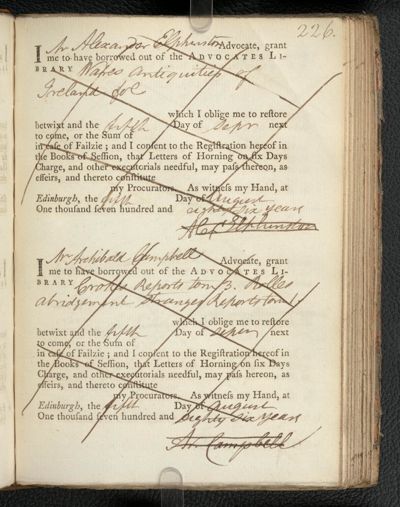 226.
I Mr Alexander Elphinston Advocate, grant
me to have borrowed out of the ADVOCATES LI-
BRARY Wares antiquities of
Ireland fol
which I oblige me to restore
betwixt and the fifth Day of Depr next
to come, or the Sum of
in case of Failzie; and I consent to the Registration hereof in
the Books of Session, that Letters of Horning on six Days
Charge, and other executorials needful, may pass thereon, as
effeirs, and thereto constitute
my Procurators. As witness my Hand, at
Edinburgh, the fifth Day of August
One thousand seven hundred and eighty six years
Alex Elphinston
I Mr Archibald Campbell Advocate, grant
me to have borrowed out of the ADVOCATES LI-
BRARY Crooks Reports tom 3. Rolles
abridgement Stranges Reports tom 1
which I oblige me to restore
betwixt and the fifth Day of next
to come, or the Sum of
in case of Failzie; and I consent to the Registration hereof in
the Books of Session, that Letters of Horning on six Days
Charge, and other executorials needful, may pass hereon, as
effeirs, and thereto constitute
my Procurators. As witness my Hand, at
Edinburgh, the fifth Day of August
One thousand seven hundred and eighty six years
Ar. Campbell